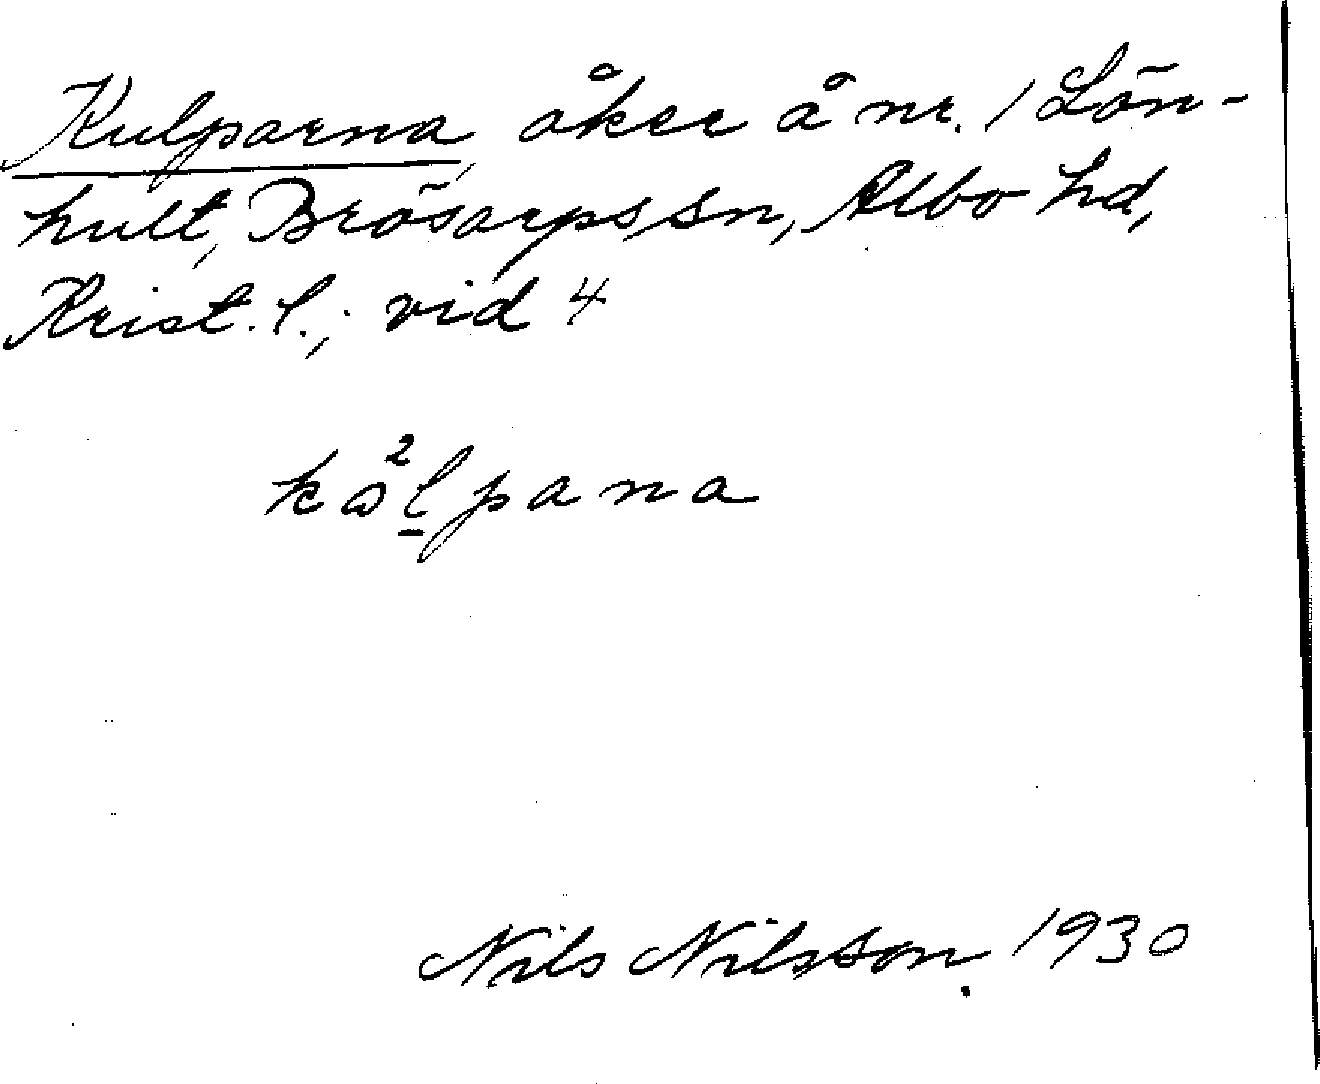 Kulparna, åker å nr. 1 Lön-
hult, Brösarps sn, Albo hd,
Krist. l.; vid 4
kɷ²l̲pana
Nils Nilsson. 1930